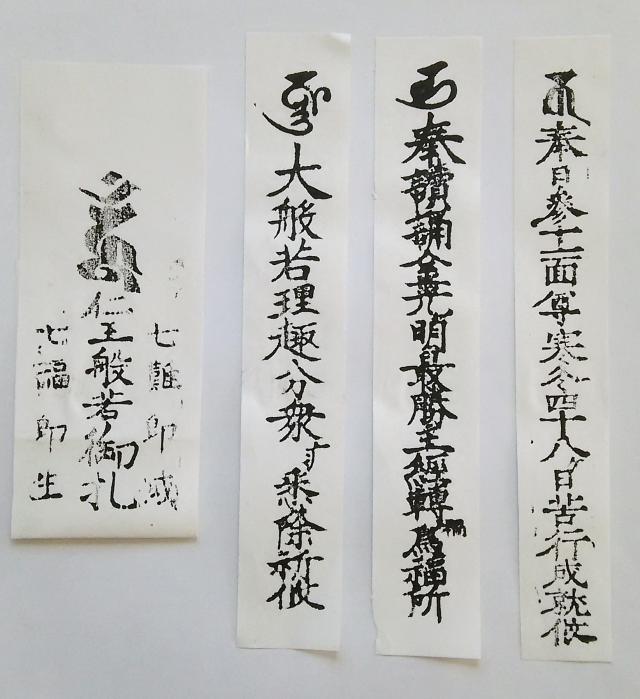 奉日參十一面尊寒冬四十八日苦行成就攸
奉讀誦金光明最勝王經轉禍爲福所
大般若理趣分衆悉除祈攸
七難即滅
仁王般若御札
七福即生